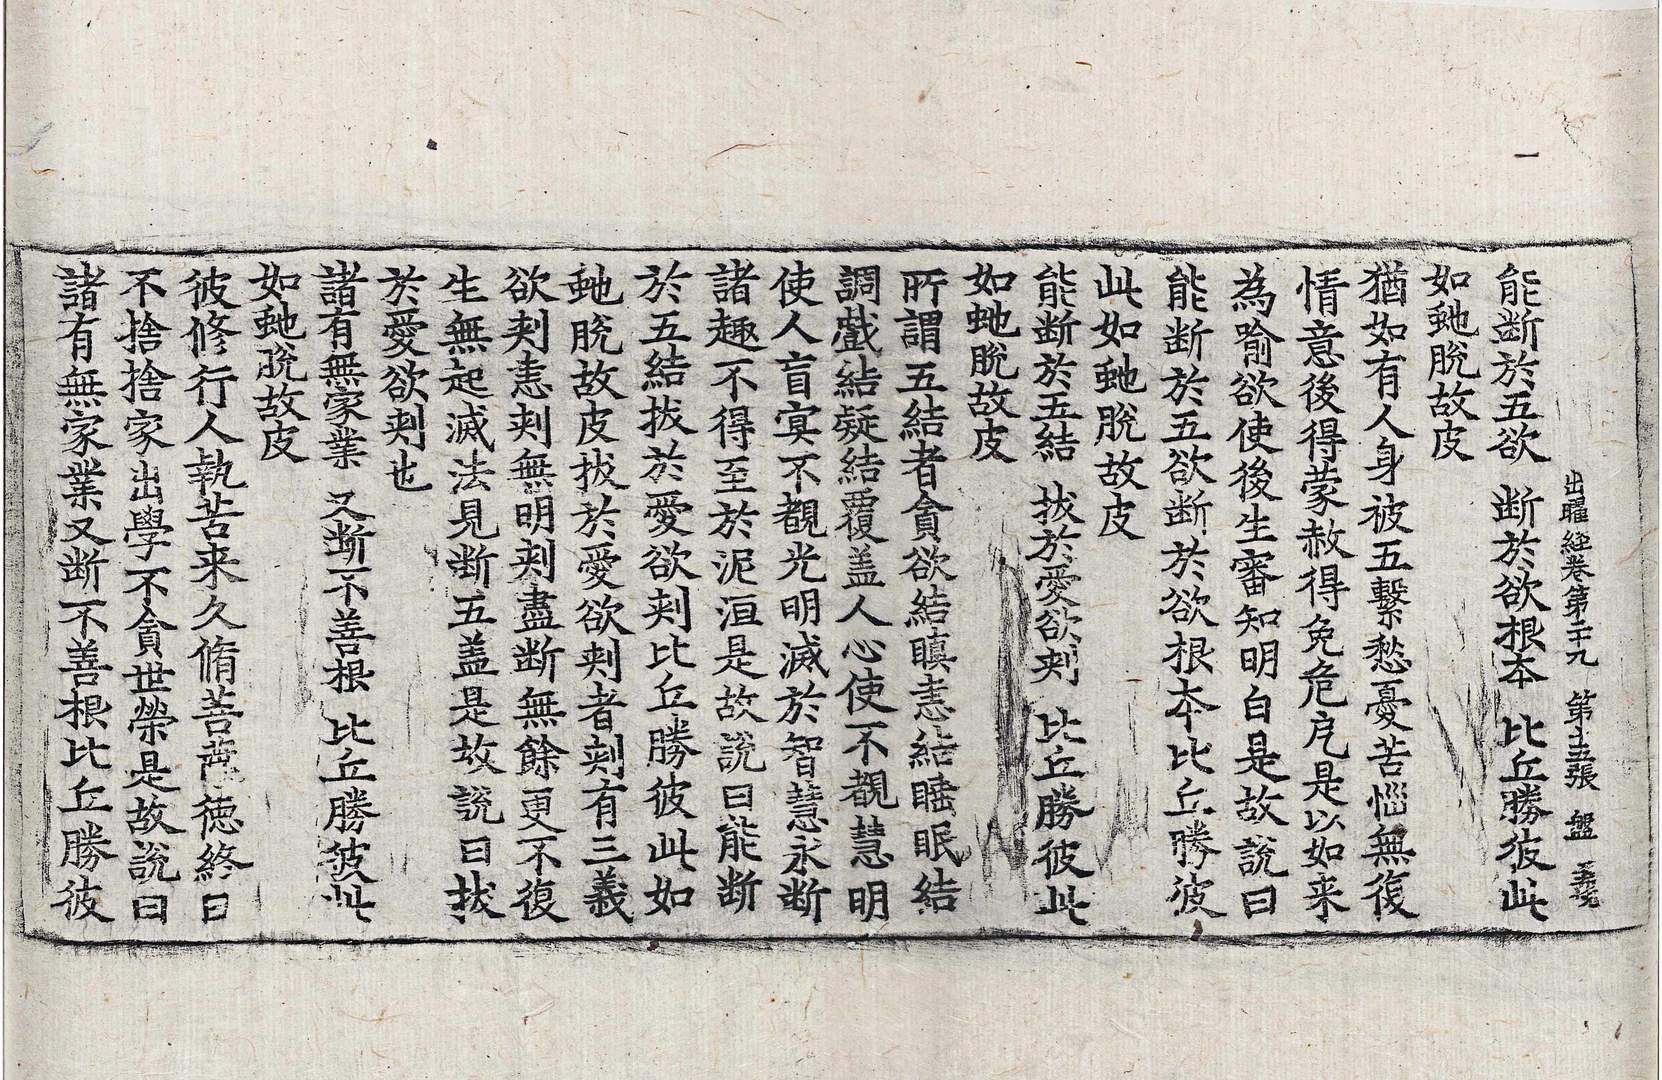 出曜経卷第二十九 第十五張 盤
能断於五欲 断於欲根夲 比丘勝彼此
如虵脫故皮
猶如有人身被五繫愁憂苦惱無復
情意後得蒙赦得免危厄是以如来
為喻欲使後生審知明白是故說曰
能断於五欲断於欲根夲比丘勝彼
此如虵脫故皮
能断於五結 拔於愛欲刾 比丘勝彼此
如虵脫故皮
所謂五結者貪欲結瞋恚結睡眠結
調戲結疑結覆盖人心使不覩慧明
使人盲㝠不覩光明滅於智慧永断
諸趣不得至於泥洹是故說曰能断
於五結拔於愛欲刾比丘勝彼此如
虵脫故皮拔於愛欲刾者刾有三義
欲刾恚刾無明刾盡断無餘更不復
生無起滅法見断五盖是故說曰拔
於愛欲刾也
諸有無家業 又断不善根 比丘勝彼此
如虵脫故皮
彼修行人執苦来久脩善德終日
不捨捨家出學不貪世榮是故說曰
諸有無家業又断不善根比丘勝彼